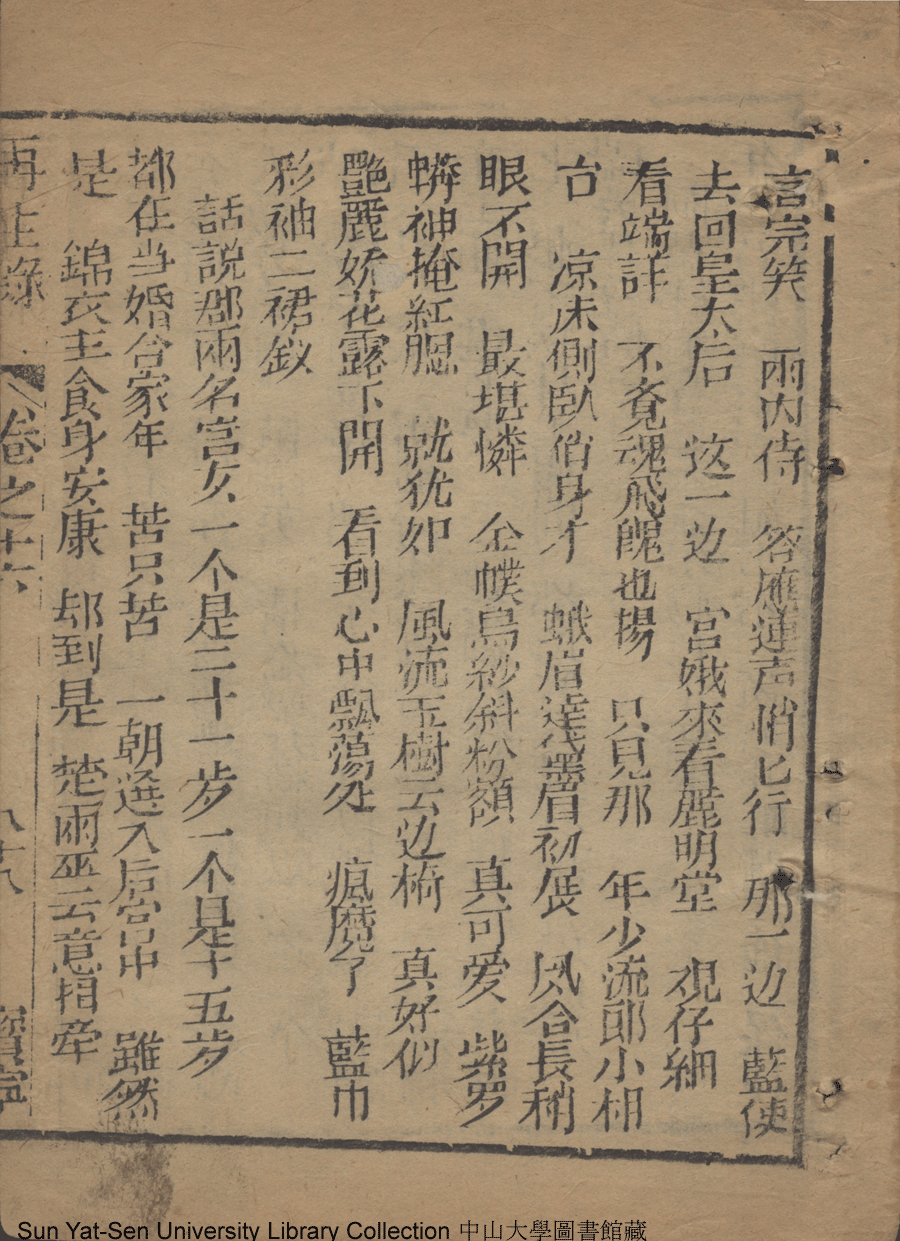 言宗笑　兩内侍　答應連声俏匕行　那一边　藍使
去回皇太后　这一边　宫娥來看麗明堂　覌仔細
看端詳　不竟魂飛魄也揚　只見那　年少流郎小相
台　凉床側臥俏身才　蛾眉達黛眉初展　凤合長稍
眼不開　最堪憐　金幞烏紗斜粉額　真可爱　紫罗
蟒神掩紅腮　就犹如　風流玉樹云边椅　真好似
艷麗娇花露下開　看到心中飄蕩处　瘋魔了　藍巾
彩袖二裙釵
話説那兩名宫女一个是二十一岁一个是十五岁
都在当婚合家年　苦只苦　一朝选入后宫中　雖然
是　錦衣主食身安康　却到是　楚雨巫云意相牵
再生錄　卷之十六　八十八　寳寧
Sun Yat-Sen University Library Collection 中山大學圖書館藏